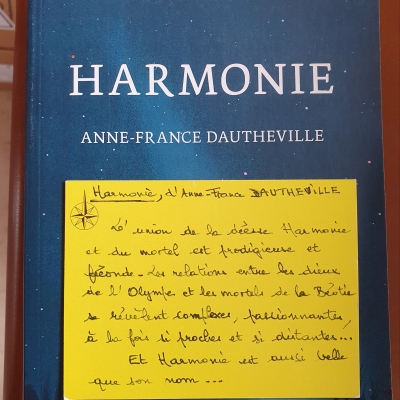 HARMONIE
ANNE-FRANCE DAUTHEVILLE
Harmonie, d'Anne-France DAUTHEVILLE
L'union de la déesse Harmonie
et du mortel est prodigieuse et
féconde. Les relations entre les dieux
de l'Olympe et les mortels de la Béotie
se révèlent complexes, passionnantes,
à la fois si proches et si distantes...
Et Harmonie est aussi belle
que son nom...